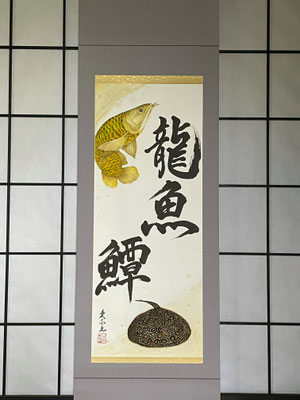 龍魚
鱏